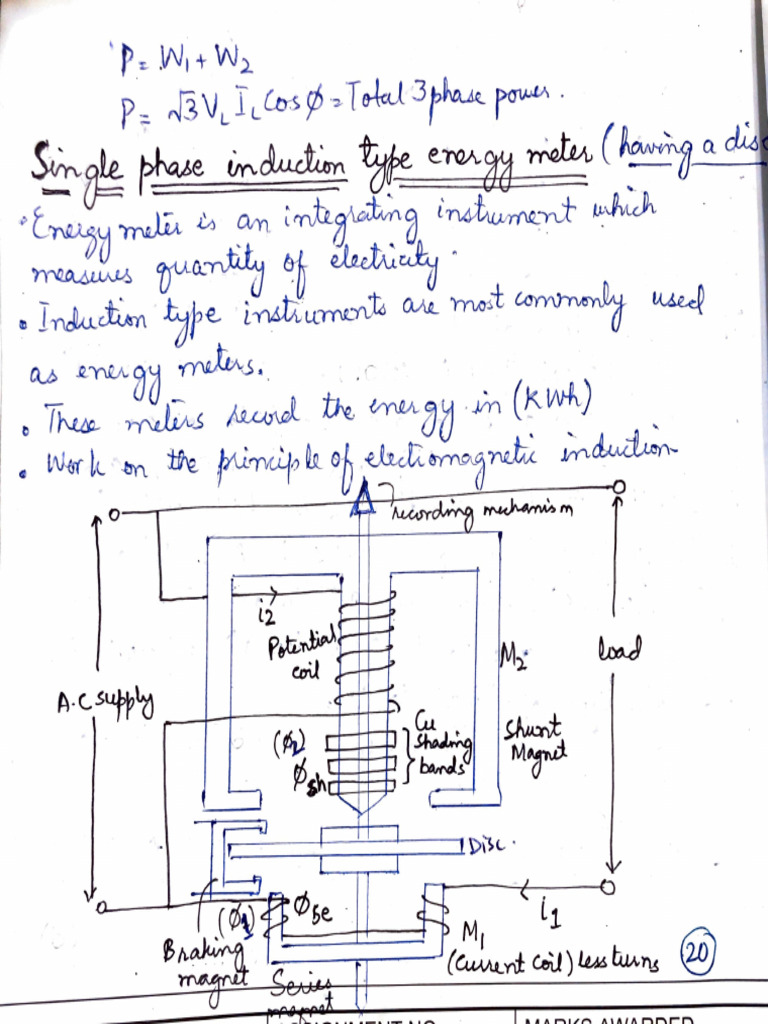 P = W1 + W2
P = √3 VL IL Cos φ = Total 3 phase power.
Single phase induction type energy meter (having a disc
• Energy meter is an integrating instrument which
measures quantity of electricity.
• Induction type instruments are most commonly used
as energy meters.
• These meters record the energy in (kWh)
• Work on the principle of electromagnetic induction
recording mechanism
i2
Potential
coil
M2
load
A.C supply
Cu
shading
bands
Shunt
Magnet
(φ2)
φsh
Disc.
(φ1)
φse
i1
Braking
magnet
M1
(current coil) Less turns
20
Series
magnet
MARKS AWARDED